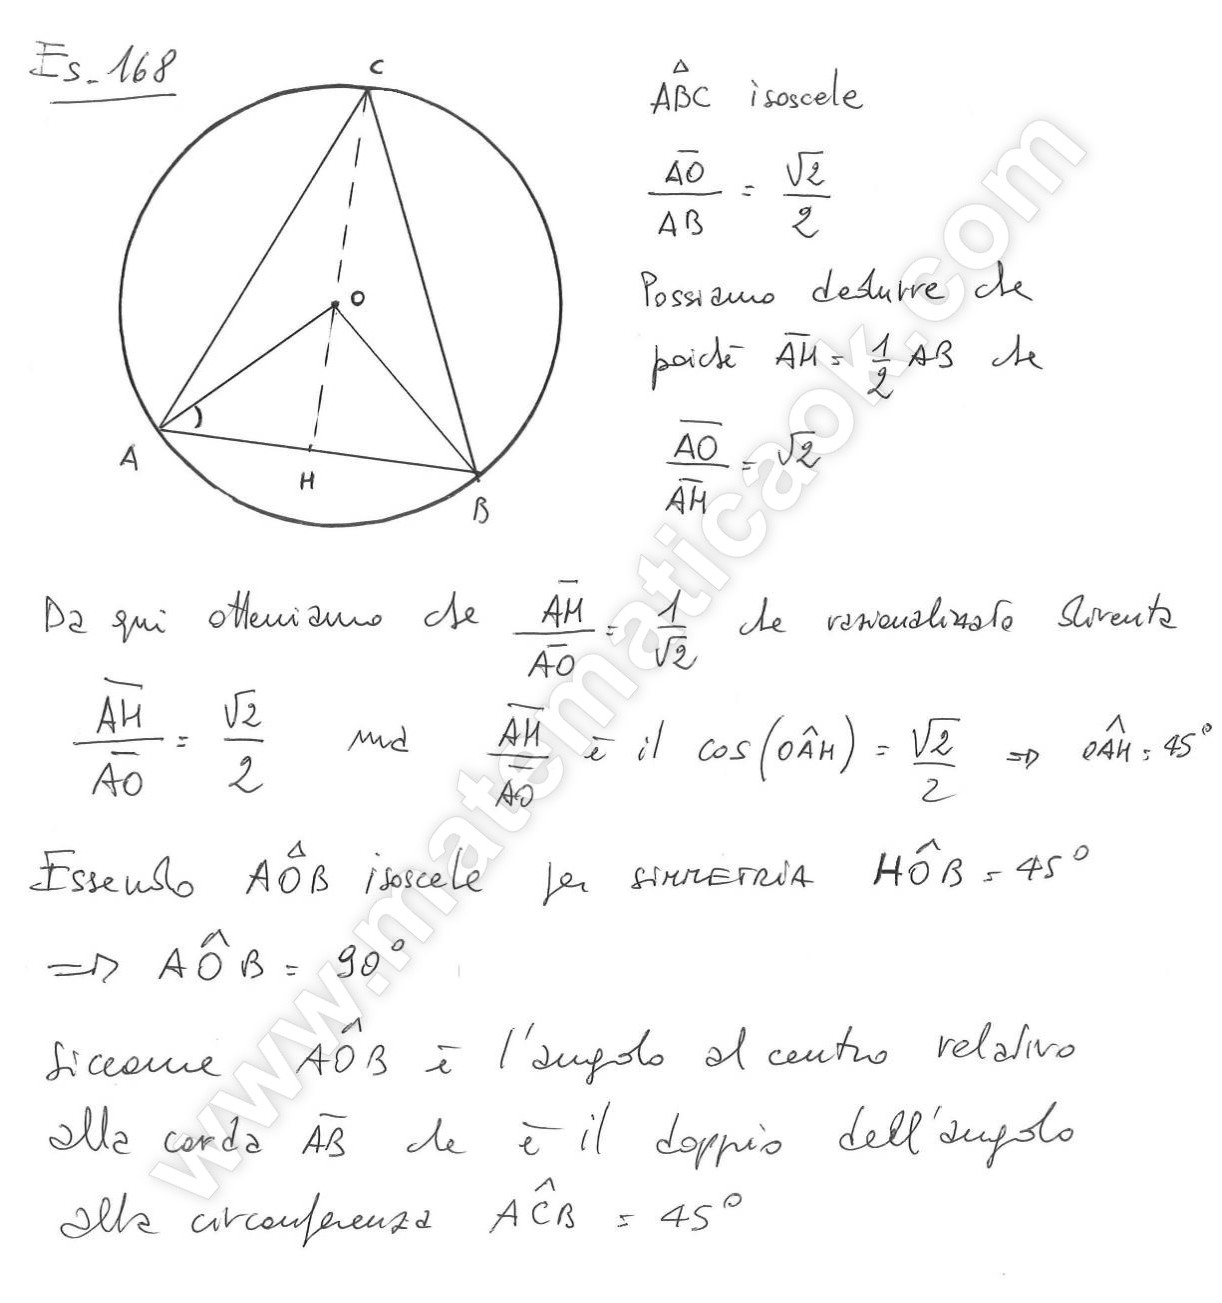 Es. 168
C
O
A
H
B
ABC isoscele
AO/AB = √2/2
Possiamo dedurre che
poiché AH = 1/2 AB che
AO/AH = √2
Da qui otteniamo che AH/AO = 1/√2 che razionalizzato diventa
AH/AO = √2/2 ma AH/AO è il cos(OÂH) = √2/2 => OÂH = 45°
Essendo AOB isoscele per SIMMETRIA HÔB = 45°
=> AÔB = 90°
Siccome AÔB è l'angolo al centro relativo
alla corda AB che è il doppio dell'angolo
alla circonferenza AĈB = 45°
www.matematicaok.com